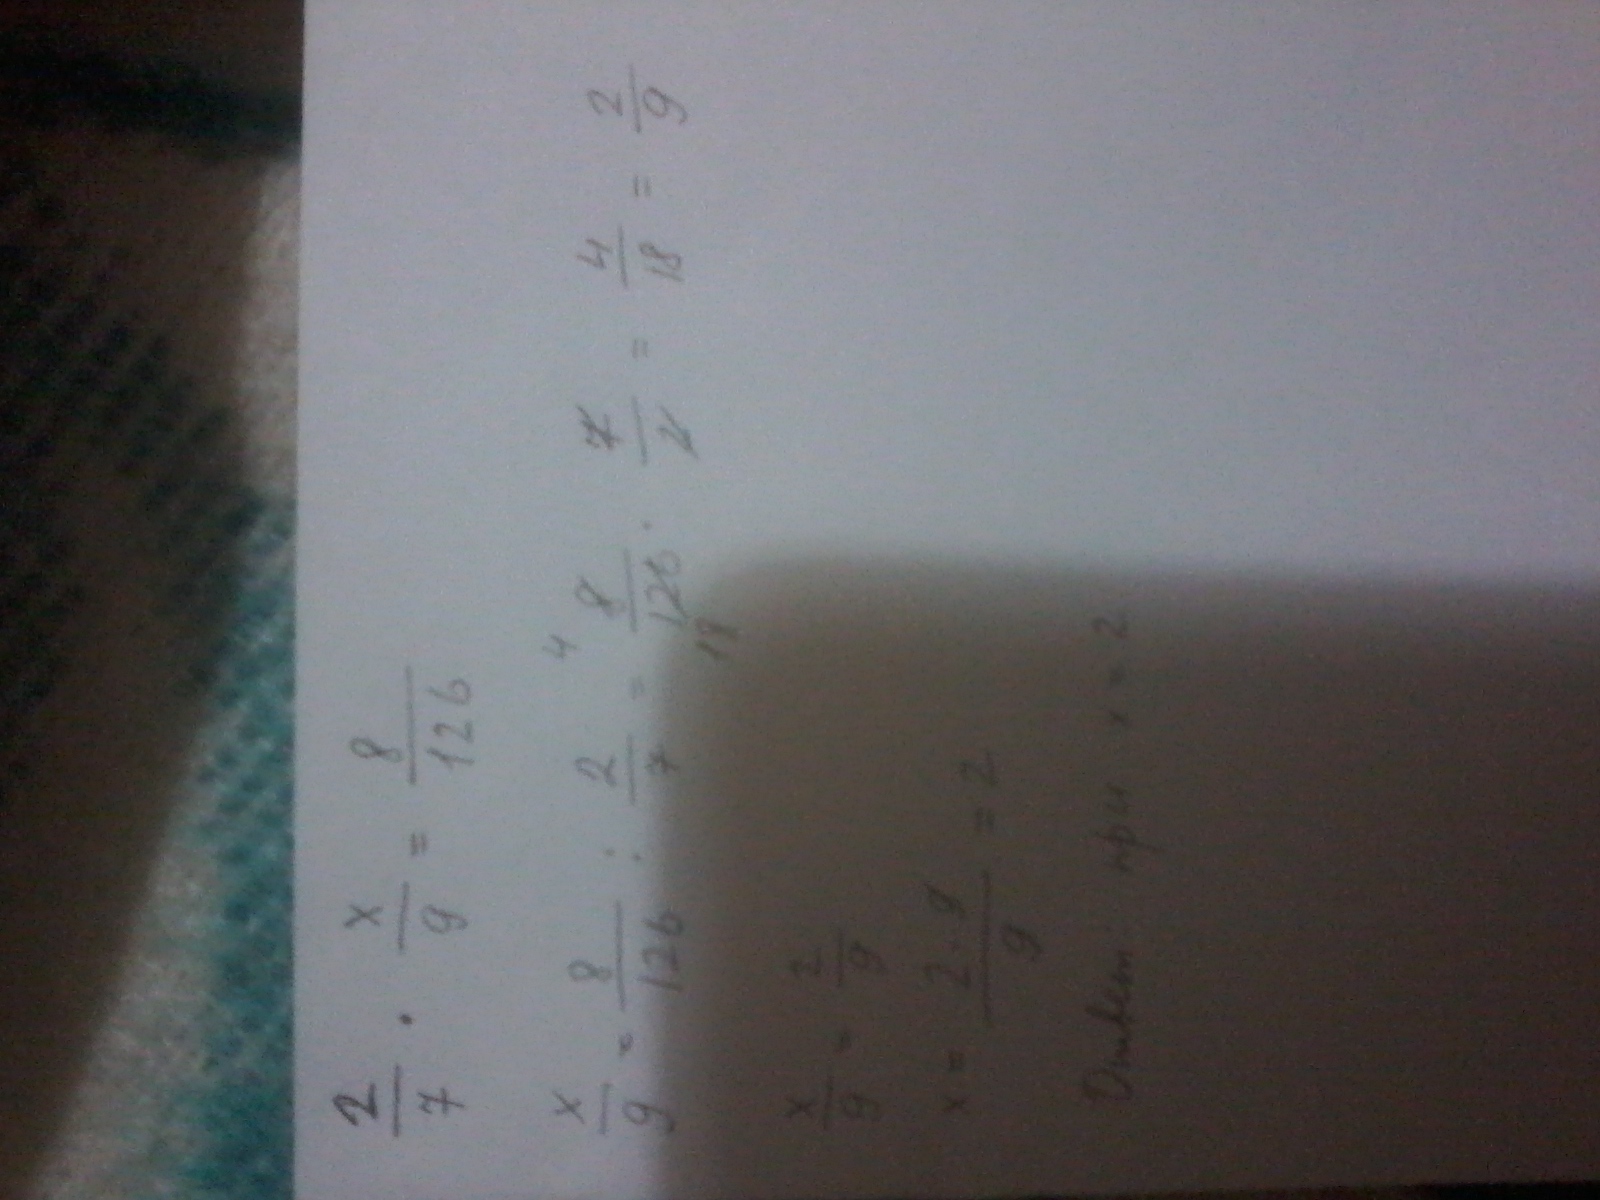 2/7 · x/9 = 8/126
x/9 = 8/126 : 2/7 = 4 8/126 18 · 7/2 = 4/18 = 2/9
x/9 = 2/9
x = 2·9/9 = 2
Ответ: при x = 2.